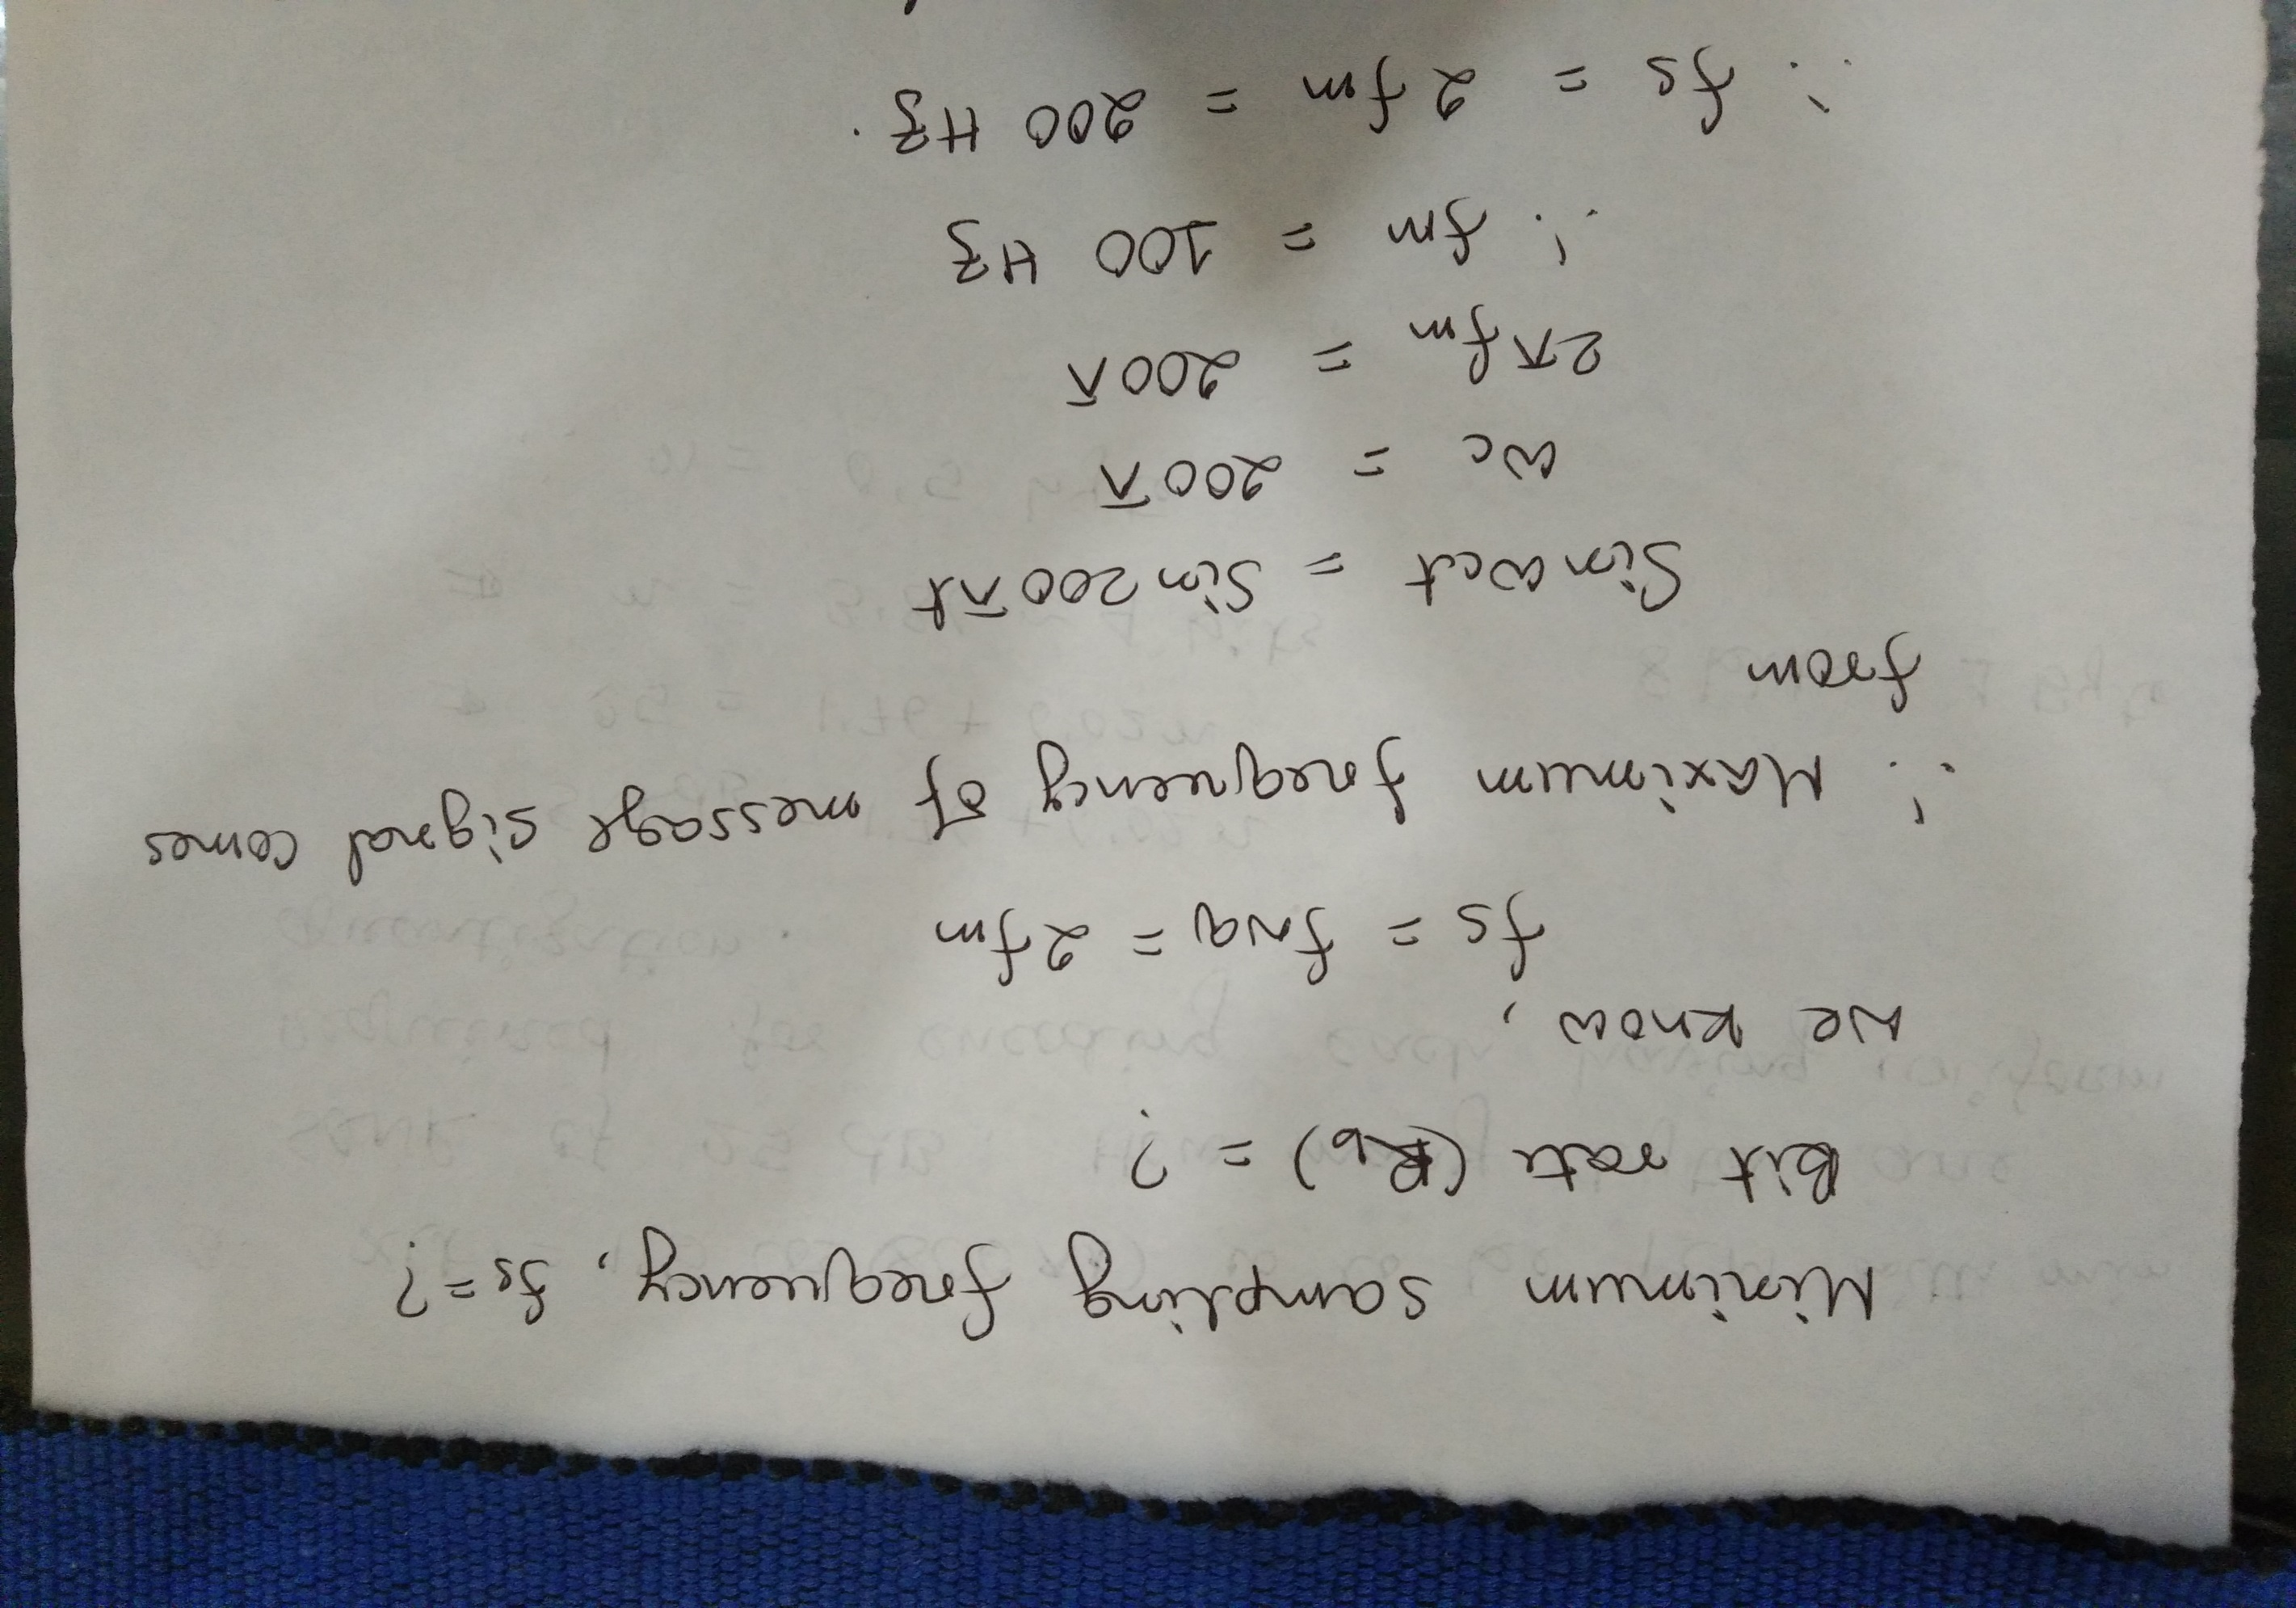 Minimum sampling frequency, fs = ?
Bit rate (Rb) = ?
We know,
fs = fNQ = 2fm
∴ Maximum frequency of message signal comes
from
Sinωct = Sin200πt
ωc = 200π
2πfm = 200π
∴ fm = 100 Hz
∴ fs = 2fm = 200 Hz.